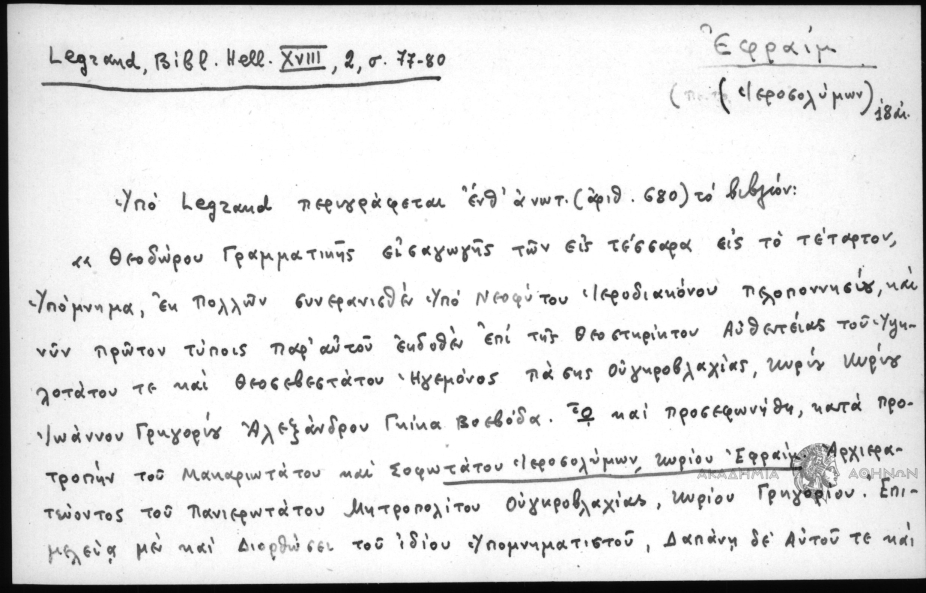 Legrand, Βιβλ. Hell. XVIII, 2, σ. 77-80
Ἐφραίμ
(Ἱεροσολύμων) 18 αἰ.
Ὑπό Legrand περιγράφεται ἐνθ' ἀνωτ. (ἀριθ. 680) τό βιβλίον:
«Θεοδώρου Γραμματικῆς εἰσαγωγῆς τῶν εἰς τέσσαρα εἰς τὸ τέταρτον,
Ὑπόμνημα, ἐκ πολλῶν συνερανισθέν ὑπό Νεοφύτου Ἱεροδιακόνου Πελοποννησίου, καὶ
νῦν πρῶτον τύποις παρ' αὐτοῦ ἐκδοθέν ἐπί τῆς Θεοστηρίκτου Αὐθεντείας τοῦ Ὑψη-
λοτάτου τε καὶ Θεοσεβεστάτου Ἡγεμόνος πάσης Οὐγκροβλαχίας, Κυρίου Κυρίου
Ἰωάννου Γρηγορίου Ἀλεξάνδρου Γκίκα Βοεβόδα. Ὧ καί προσεφωνήθη, κατά προ-
τροπήν τοῦ Μακαριωτάτου καί Σοφωτάτου Ἱεροσολύμων, κυρίου Ἐφραίμ. Ἀρχιερα-
ΑΚΑΔΗΜΙΑ ΑΘΗΝΩΝ
τεύοντος τοῦ Πανιερωτάτου Μητροπολίτου Οὐγκροβλαχίας, κυρίου Γρηγορίου. Ἐπι-
μελείᾳ μέν καί Διορθώσει τοῦ ἰδίου ὑπομνηματιστοῦ, Δαπάνῃ δέ Αὐτοῦ τε καί